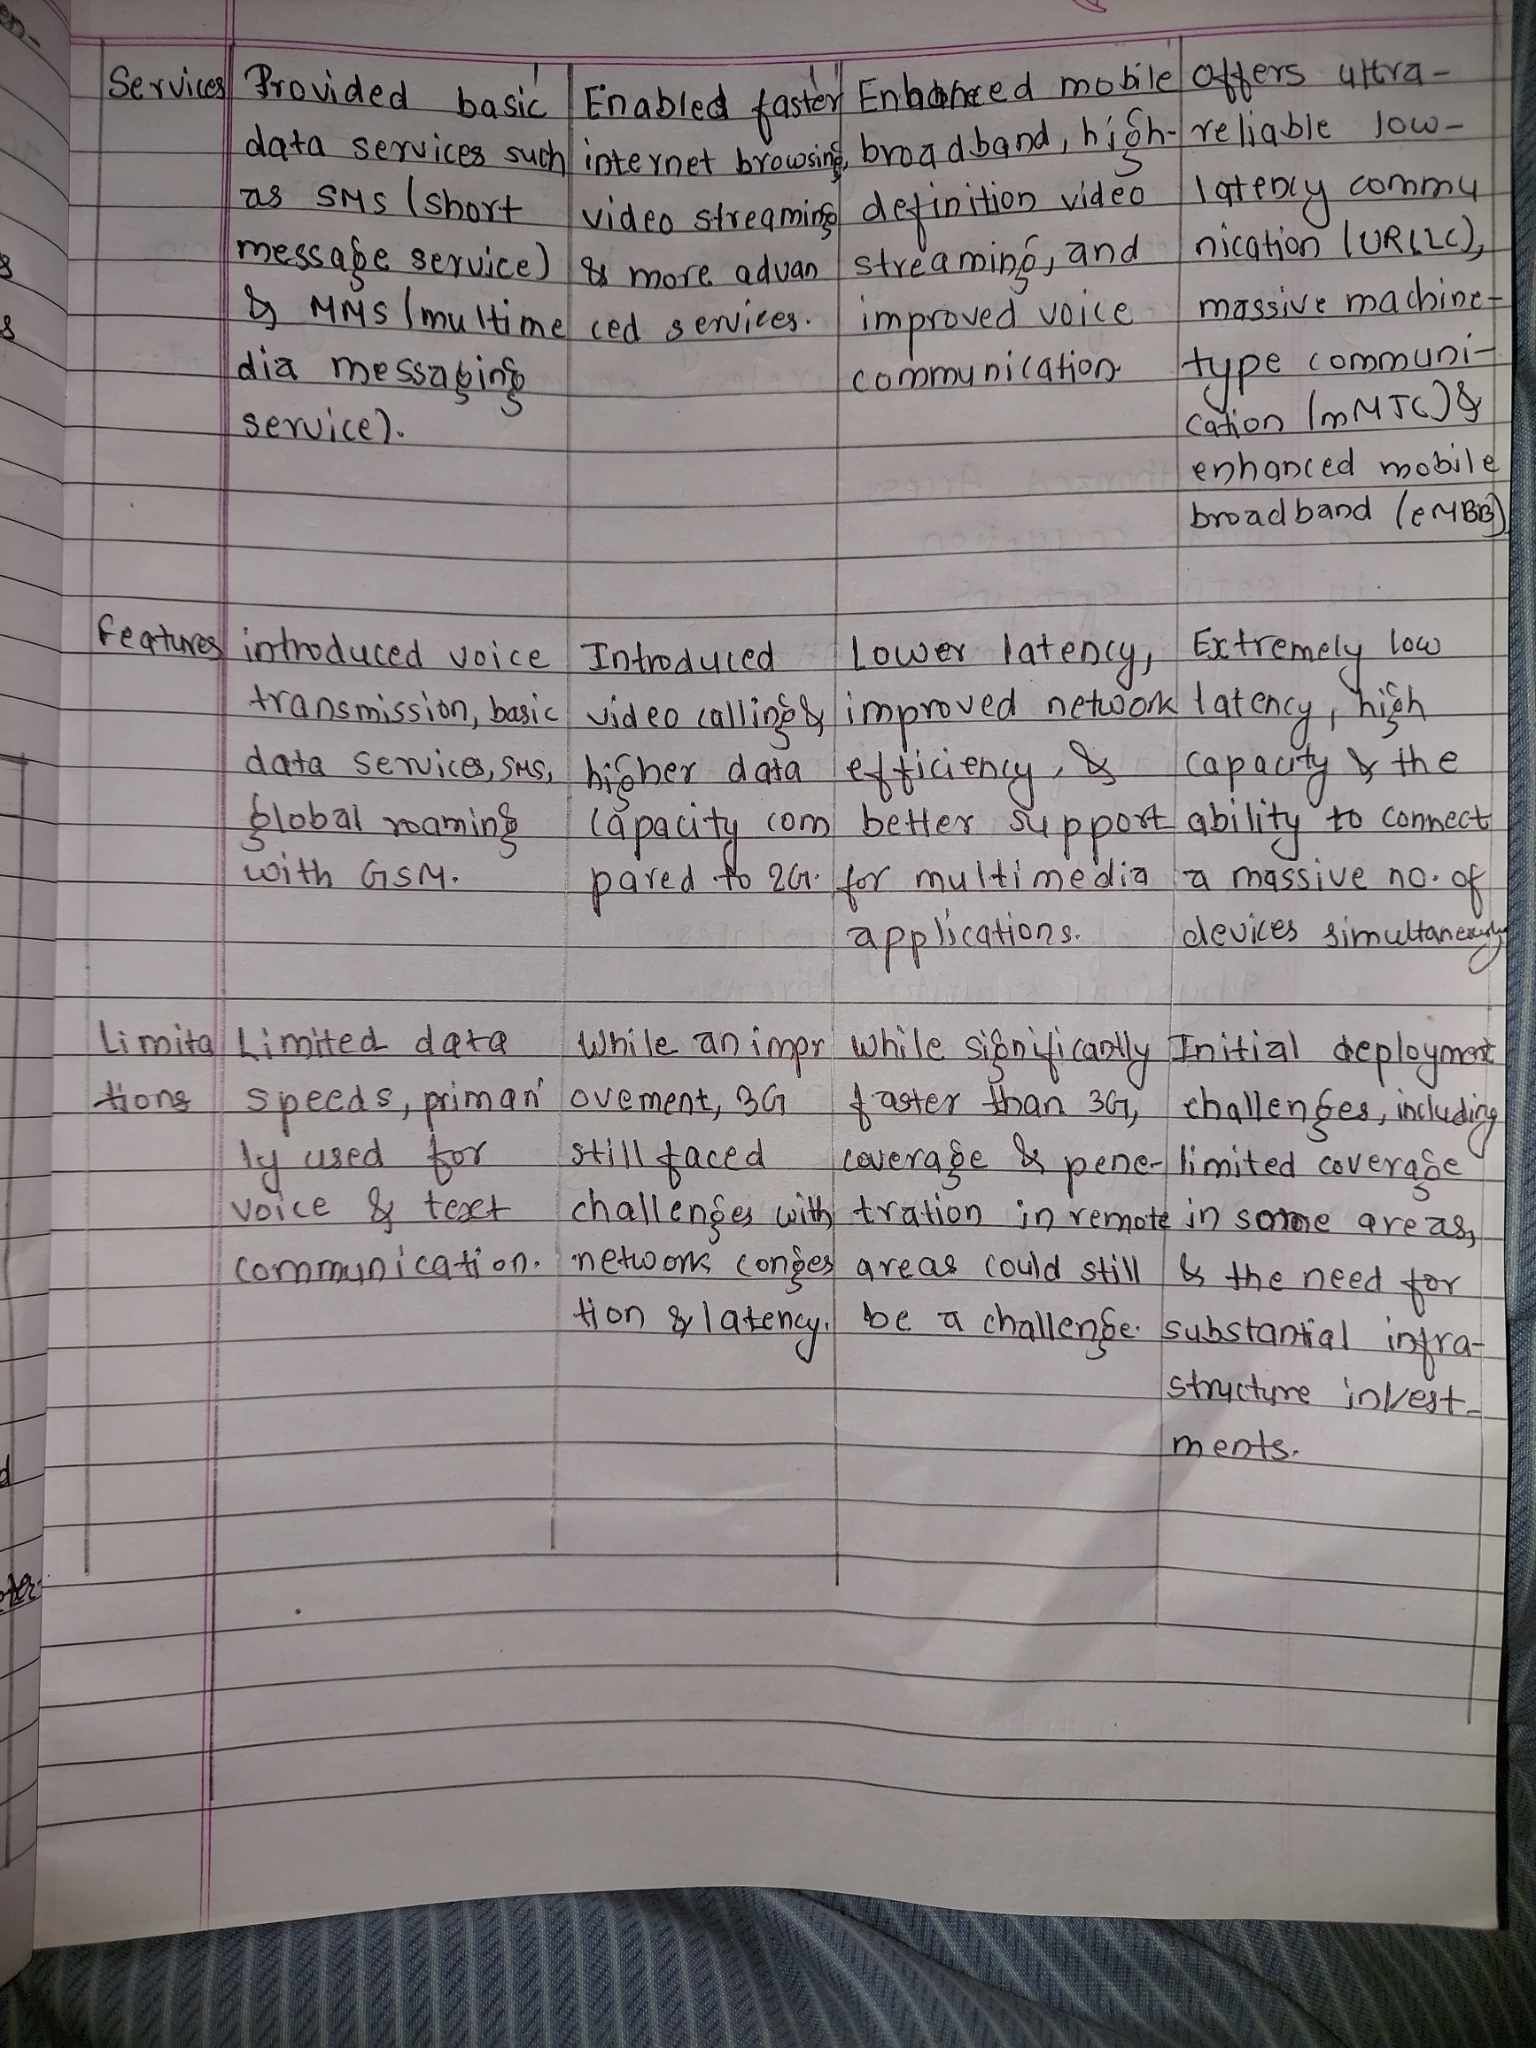 Services
Provided basic
data services such
as SMS (short
message service)
& MMS (multime
dia messaging
service).
Enabled faster
internet browsing,
video streaming
& more advan
ced services.
Enhanced mobile
broadband, high-
definition video
streaming, and
improved voice
communication.
Offers ultra-
reliable low-
latency commu
nication (URLLC),
massive machine-
type communi-
cation (mMTC) &
enhanced mobile
broadband (eMBB)
Features
introduced voice
transmission, basic
data services, SMS,
global roaming
with GSM.
Introduced
video calling &
higher data
capacity com
pared to 2G.
Lower latency,
improved network
efficiency, &
better support
for multimedia
applications.
Extremely low
latency, high
capacity & the
ability to connect
a massive no. of
devices simultaneously
Limita
tions
Limited data
speeds, primari
ly used for
voice & text
communication.
While an impr
ovement, 3G
still faced
challenges with
network conges
tion & latency.
While significantly
faster than 3G,
coverage & pene-
tration in remote
areas could still
be a challenge.
Initial deployment
challenges, including
limited coverage
in some areas,
& the need for
substantial infra-
structure invest-
ments.